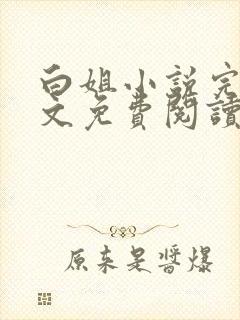 白姐小説完
文免費閱讀
原来是醬爆